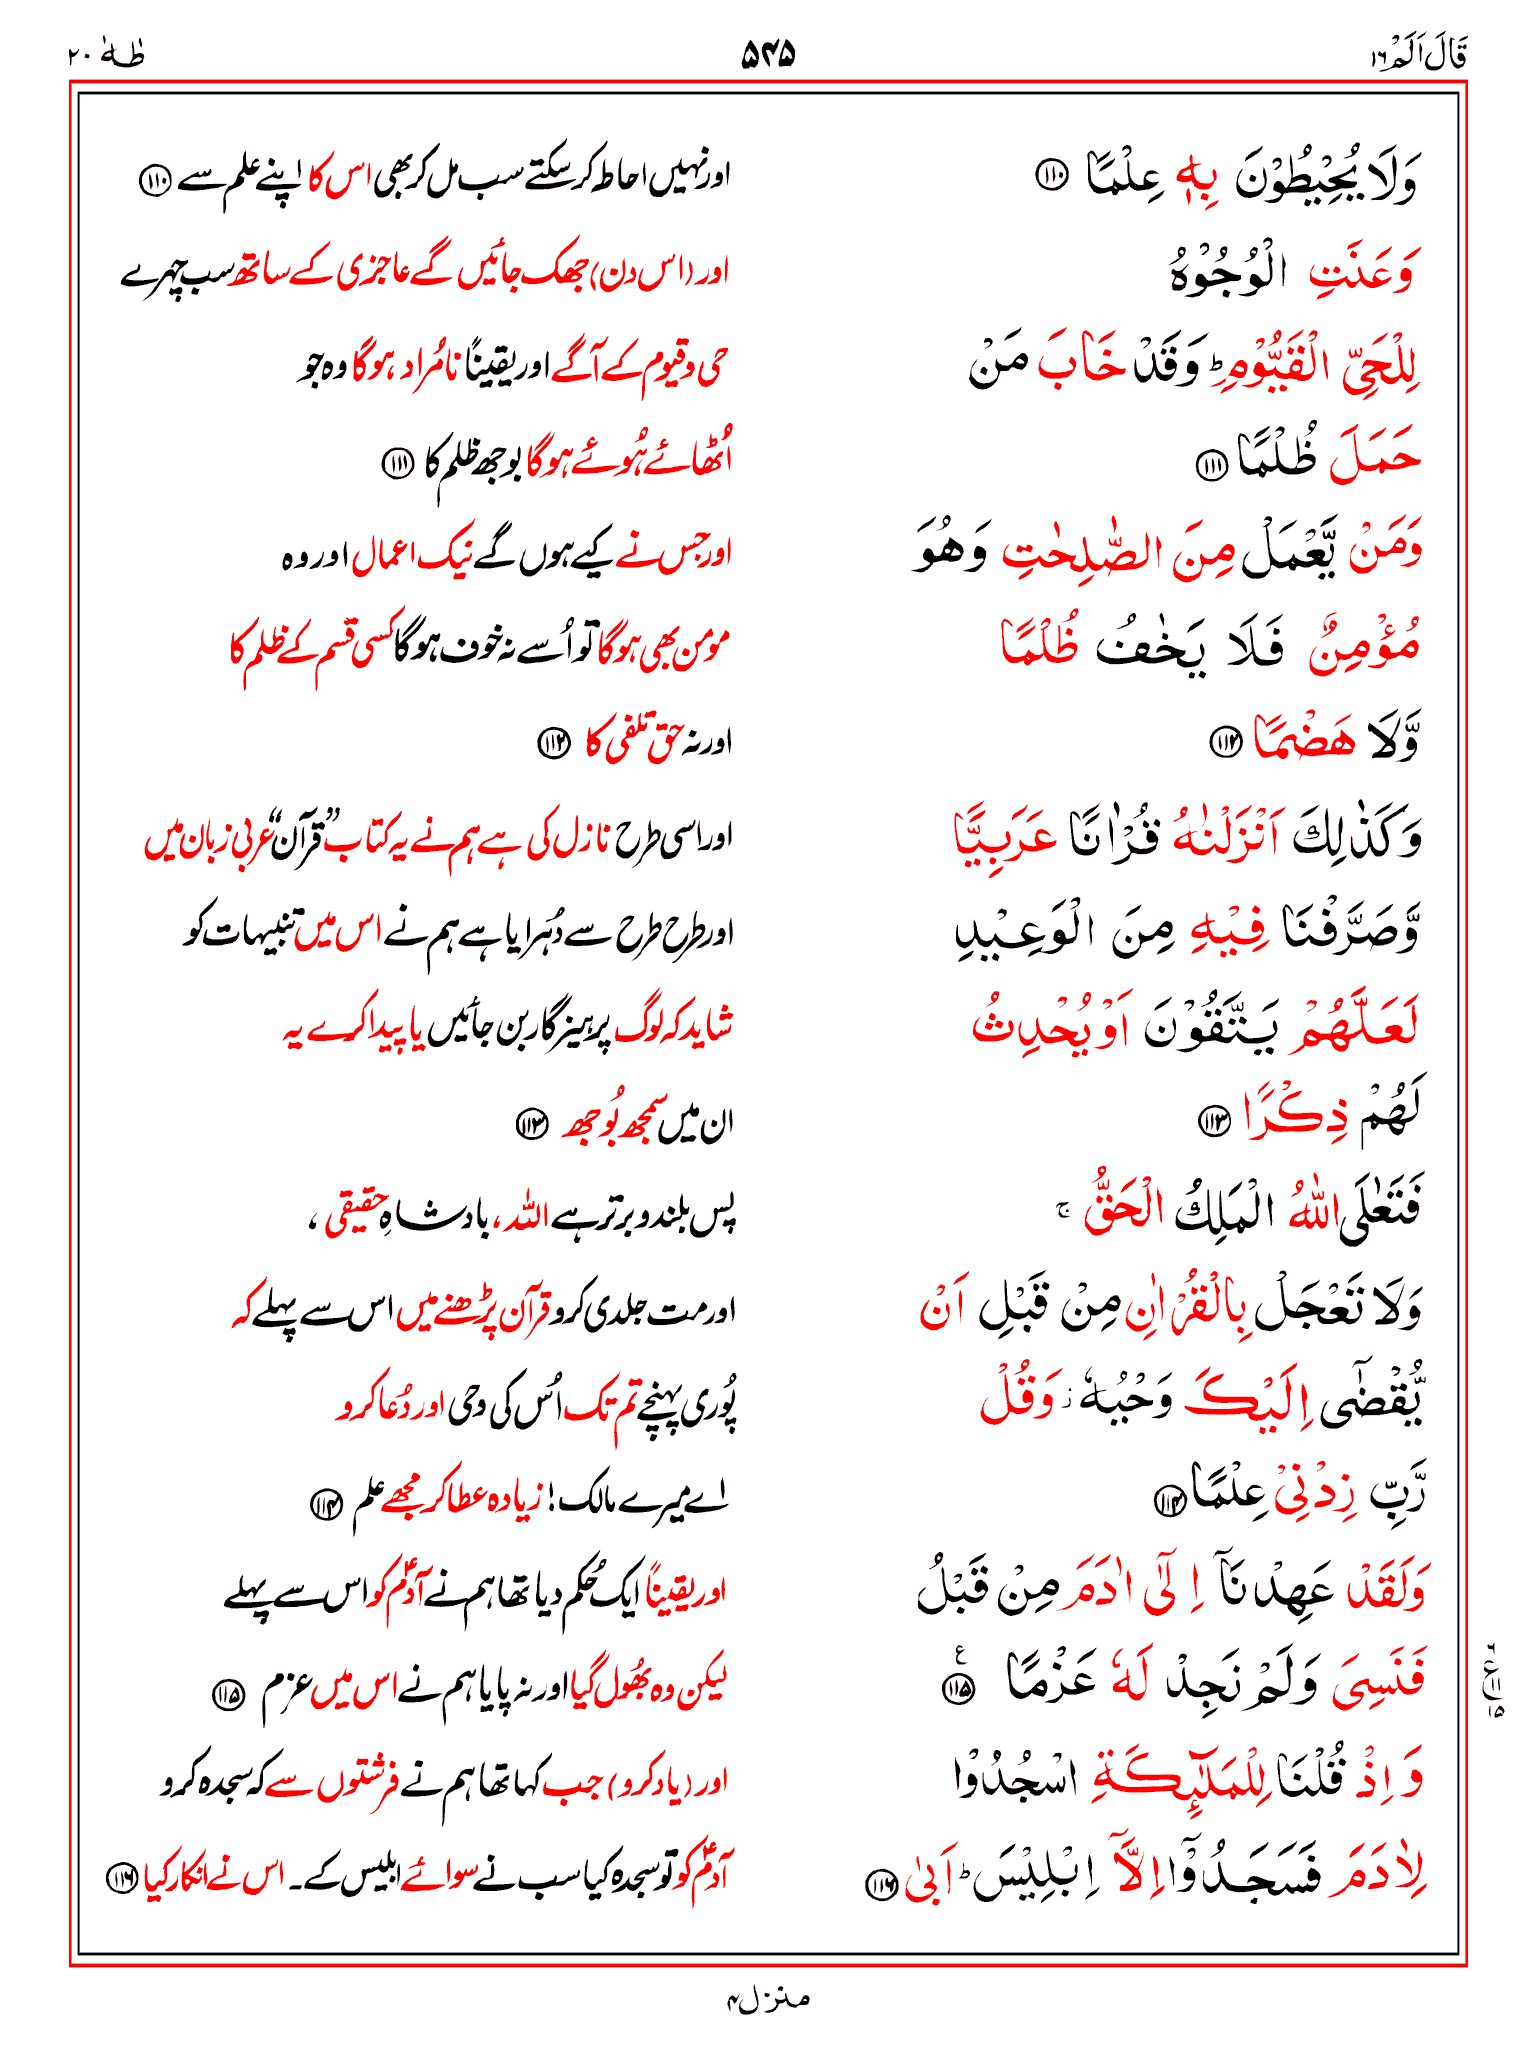 قَالَ اَلَمْ ١٦ ۵۴۵ طٰهٰ ٢٠
وَلَا يُحِيْطُوْنَ بِهٖ عِلْمًا ﴿١١٠﴾ اور نہیں احاطہ کرسکتے سب مل کر بھی اس کا اپنے علم سے ﴿١١٠﴾
وَعَنَتِ الْوُجُوْهُ اور (اس دن) جھک جائیں گے عاجزی کے ساتھ سب چہرے
لِلْحَيِّ الْقَيُّوْمِ ؕ وَقَدْ خَابَ مَنْ حی وقیوم کے آگے اور یقیناً نامُراد ہوگا وہ جو
حَمَلَ ظُلْمًا ﴿١١١﴾ اُٹھائے ہُوئے ہوگا بوجھ ظلم کا ﴿١١١﴾
وَمَنْ يَّعْمَلْ مِنَ الصّٰلِحٰتِ وَهُوَ اور جس نے کیے ہوں گے نیک اعمال اور وہ
مُؤْمِنٌ فَلَا يَخٰفُ ظُلْمًا مومن بھی ہوگا تو اُسے نہ خوف ہوگا کسی قسم کے ظلم کا
وَّلَا هَضْمًا ﴿١١٢﴾ اور نہ حق تلفی کا ﴿١١٢﴾
وَكَذٰلِكَ اَنْزَلْنٰهُ قُرْاٰنًا عَرَبِيًّا اور اسی طرح نازل کی ہے ہم نے یہ کتاب ”قرآن“ عربی زبان میں
وَّصَرَّفْنَا فِيْهِ مِنَ الْوَعِيْدِ اور طرح طرح سے دُہرایا ہے ہم نے اس میں تنبیہات کو
لَعَلَّهُمْ يَتَّقُوْنَ اَوْ يُحْدِثُ شاید کہ لوگ پرہیز گار بن جائیں یا پیدا کرے یہ
لَهُمْ ذِكْرًا ﴿١١٣﴾ ان میں سمجھ بُوجھ ﴿١١٣﴾
فَتَعٰلَى اللّٰهُ الْمَلِكُ الْحَقُّ ۚ پس بلند و برتر ہے اللہ، بادشاہِ حقیقی ،
وَلَا تَعْجَلْ بِالْقُرْاٰنِ مِنْ قَبْلِ اَنْ اور مت جلدی کرو قرآن پڑھنے میں اس سے پہلے کہ
يُّقْضٰٓى اِلَيْكَ وَحْيُهٗ ؗ وَقُلْ پُوری پہنچے تم تک اُس کی وحی اور دُعا کرو
رَّبِّ زِدْنِيْ عِلْمًا ﴿١١٤﴾ اے میرے مالک! زیادہ عطا کر مجھے علم ﴿١١٤﴾
وَلَقَدْ عَهِدْنَآ اِلٰٓى اٰدَمَ مِنْ قَبْلُ اور یقیناً ایک حُکم دیا تھا ہم نے آدمؑ کو اس سے پہلے
فَنَسِيَ وَلَمْ نَجِدْ لَهٗ عَزْمًا ﴿١١٥﴾ ع لیکن وہ بھُول گیا اور نہ پایا ہم نے اس میں عزم ﴿١١٥﴾
وَاِذْ قُلْنَا لِلْمَلٰٓئِكَةِ اسْجُدُوْا اور (یاد کرو) جب کہا تھا ہم نے فرشتوں سے کہ سجدہ کرو
لِاٰدَمَ فَسَجَدُوْٓا اِلَّآ اِبْلِيْسَ ؕ اَبٰى ﴿١١٦﴾ آدمؑ کو تو سجدہ کیا سب نے سوائے ابلیس کے۔ اس نے انکار کیا ﴿١١٦﴾
منزل۴